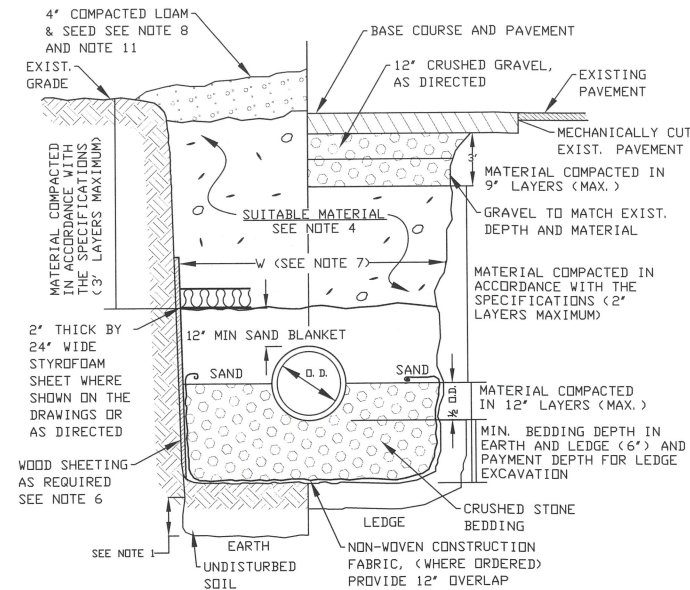 4" COMPACTED LOAM
& SEED SEE NOTE 8
AND NOTE 11
EXIST.
GRADE
BASE COURSE AND PAVEMENT
12" CRUSHED GRAVEL,
AS DIRECTED
EXISTING
PAVEMENT
MECHANICALLY CUT
EXIST. PAVEMENT
3'
MATERIAL COMPACTED IN
9" LAYERS (MAX.)
GRAVEL TO MATCH EXIST.
DEPTH AND MATERIAL
MATERIAL COMPACTED
IN ACCORDANCE WITH
THE SPECIFICATIONS
(3' LAYERS MAXIMUM)
SUITABLE MATERIAL
SEE NOTE 4
W (SEE NOTE 7)
MATERIAL COMPACTED IN
ACCORDANCE WITH THE
SPECIFICATIONS (2"
LAYERS MAXIMUM)
2" THICK BY
24" WIDE
STYROFOAM
SHEET WHERE
SHOWN ON THE
DRAWINGS OR
AS DIRECTED
12" MIN SAND BLANKET
SAND
O.D.
SAND
½ O.D.
MATERIAL COMPACTED
IN 12" LAYERS (MAX.)
MIN. BEDDING DEPTH IN
EARTH AND LEDGE (6") AND
PAYMENT DEPTH FOR LEDGE
EXCAVATION
WOOD SHEETING
AS REQUIRED
SEE NOTE 6
CRUSHED STONE
BEDDING
LEDGE
EARTH
SEE NOTE 1
UNDISTURBED
SOIL
NON-WOVEN CONSTRUCTION
FABRIC, (WHERE ORDERED)
PROVIDE 12" OVERLAP